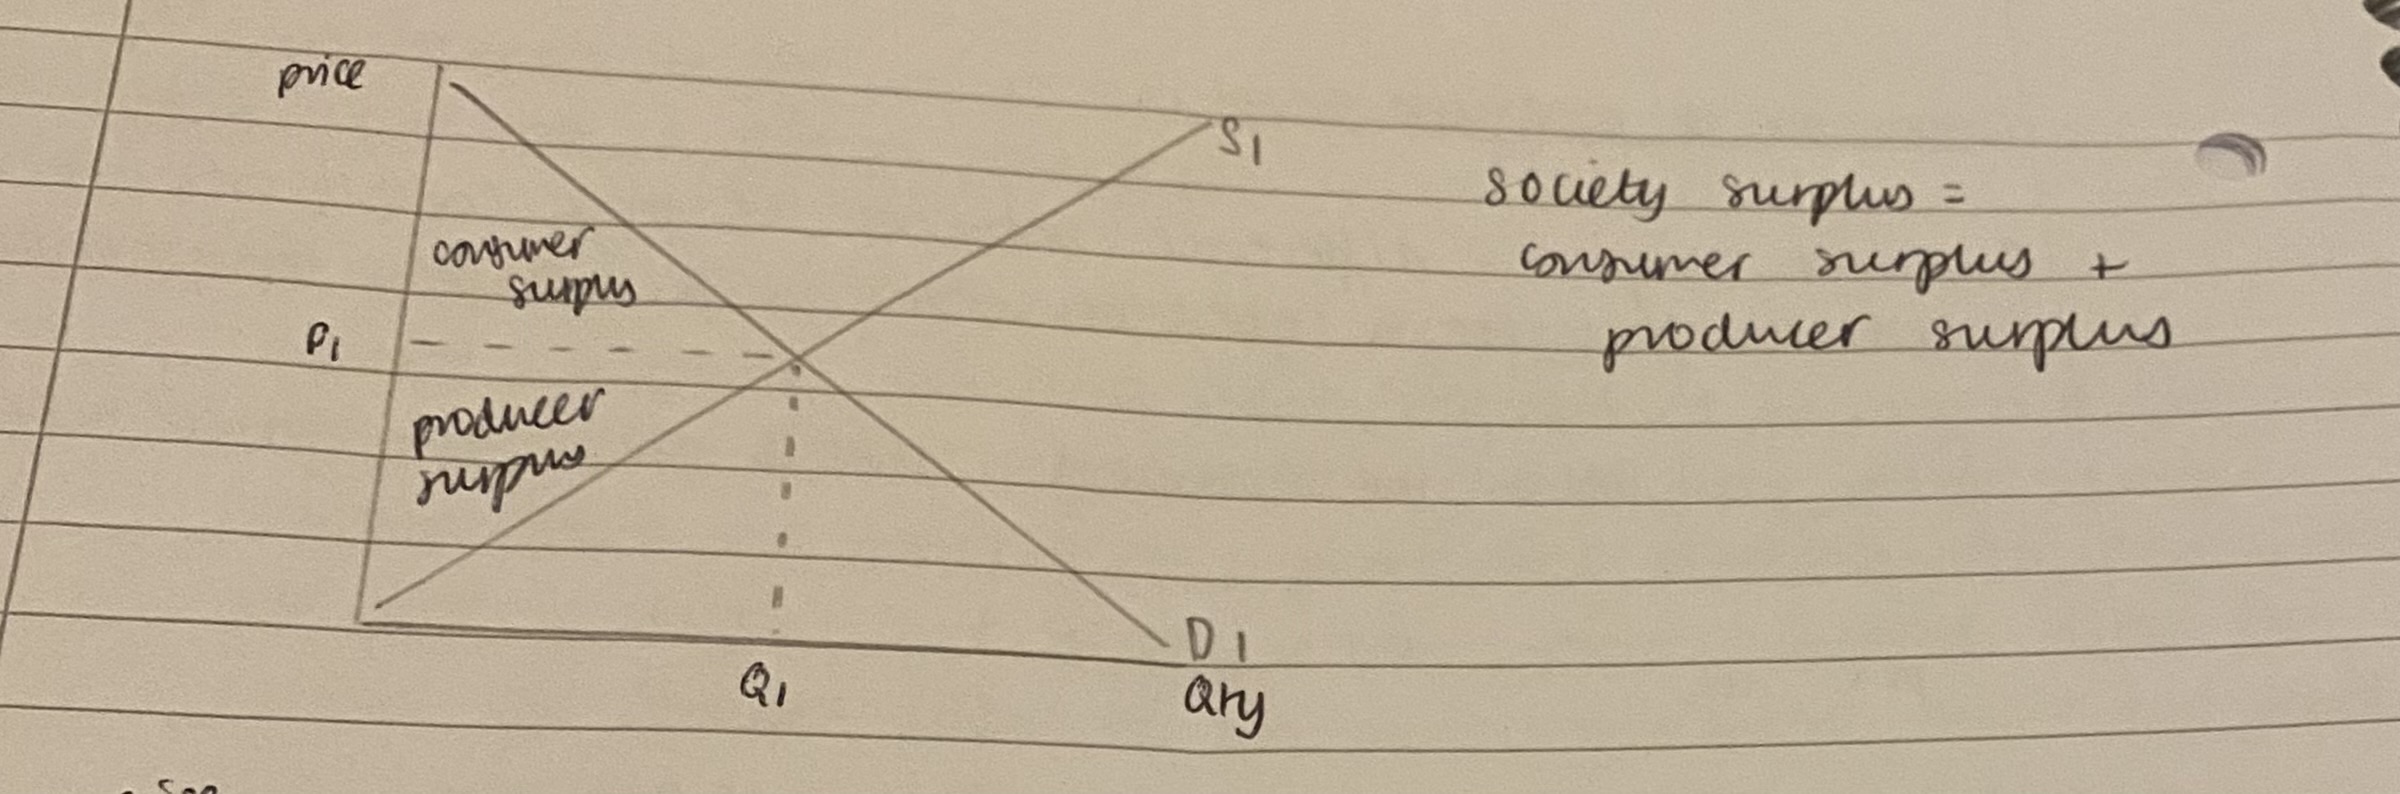 price
S1
society surplus =
consumer surplus +
producer surplus
consumer
surpus
P1
producer
surpus
D1
Q1
Qty